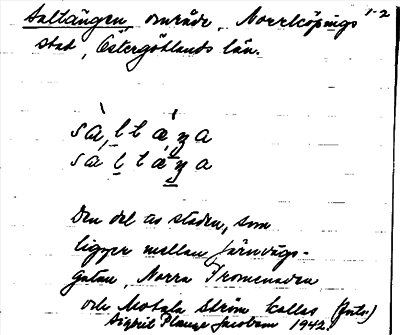 Saltängen, område, Norrköpings 1-2
stad, Östergötlands län.
sàltáŋa
sàltáŋa
Den del av staden, som
ligger mellan Järnvägs-
gatan, Norra Promenaden
och Motala Ström kallas (forts.)
Sigrid Planze Jacobson 1942.